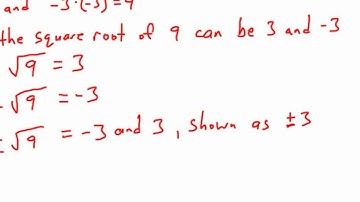 and -3·(-3)=9
the square root of 9 can be 3 and -3
√9 = 3
-√9 = -3
±√9 = -3 and 3, shown as ±3